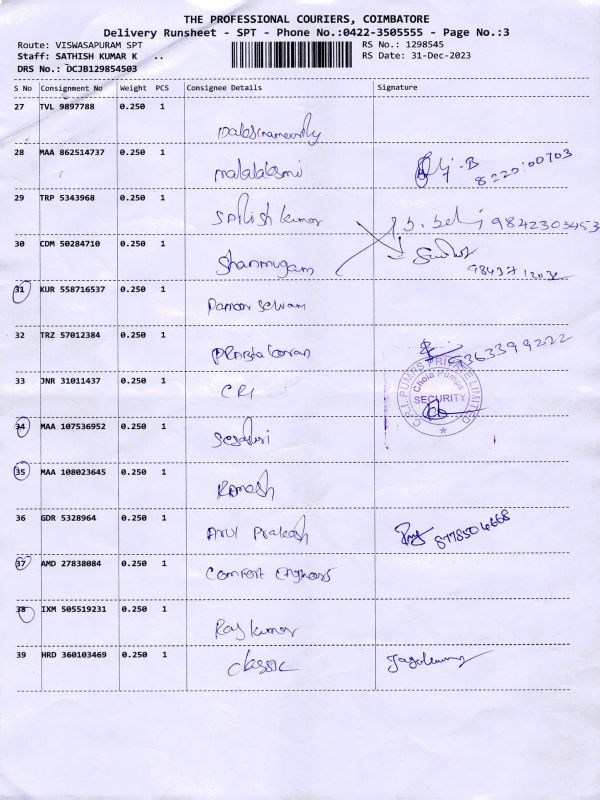 THE PROFESSIONAL COURIERS, COIMBATORE
Delivery Runsheet - SPT - Phone No.:0422-3505555 - Page No.:3
Route: VISWASAPURAM SPT RS No.: 1298545
Staff: SATHISH KUMAR K .. RS Date: 31-Dec-2023
DRS No.: DCJB129854503
S No Consignment No Weight PCS Consignee Details Signature
27 TVL 9897788 0.250 1
28 MAA 862514737 0.250 1 malalakshmi 8220100703
29 TRP 5343968 0.250 1 Satish kumar 9842303453
30 CDM 50284710 0.250 1 Shanmugam
31 KUR 558716537 0.250 1
32 TRZ 57012384 0.250 1 9363399222
33 JNR 31011437 0.250 1 CRI
C.R.I. PUMPS PRIVATE LIMITED
Chola Pumps
SECURITY
34 MAA 107536952 0.250 1
35 MAA 108023645 0.250 1 Ramesh
36 GDR 5328964 0.250 1 Arul Prakash
37 AMD 27838084 0.250 1 Comfort Engineers
38 IXM 505519231 0.250 1 Raj kumar
39 HRD 360103469 0.250 1 classic